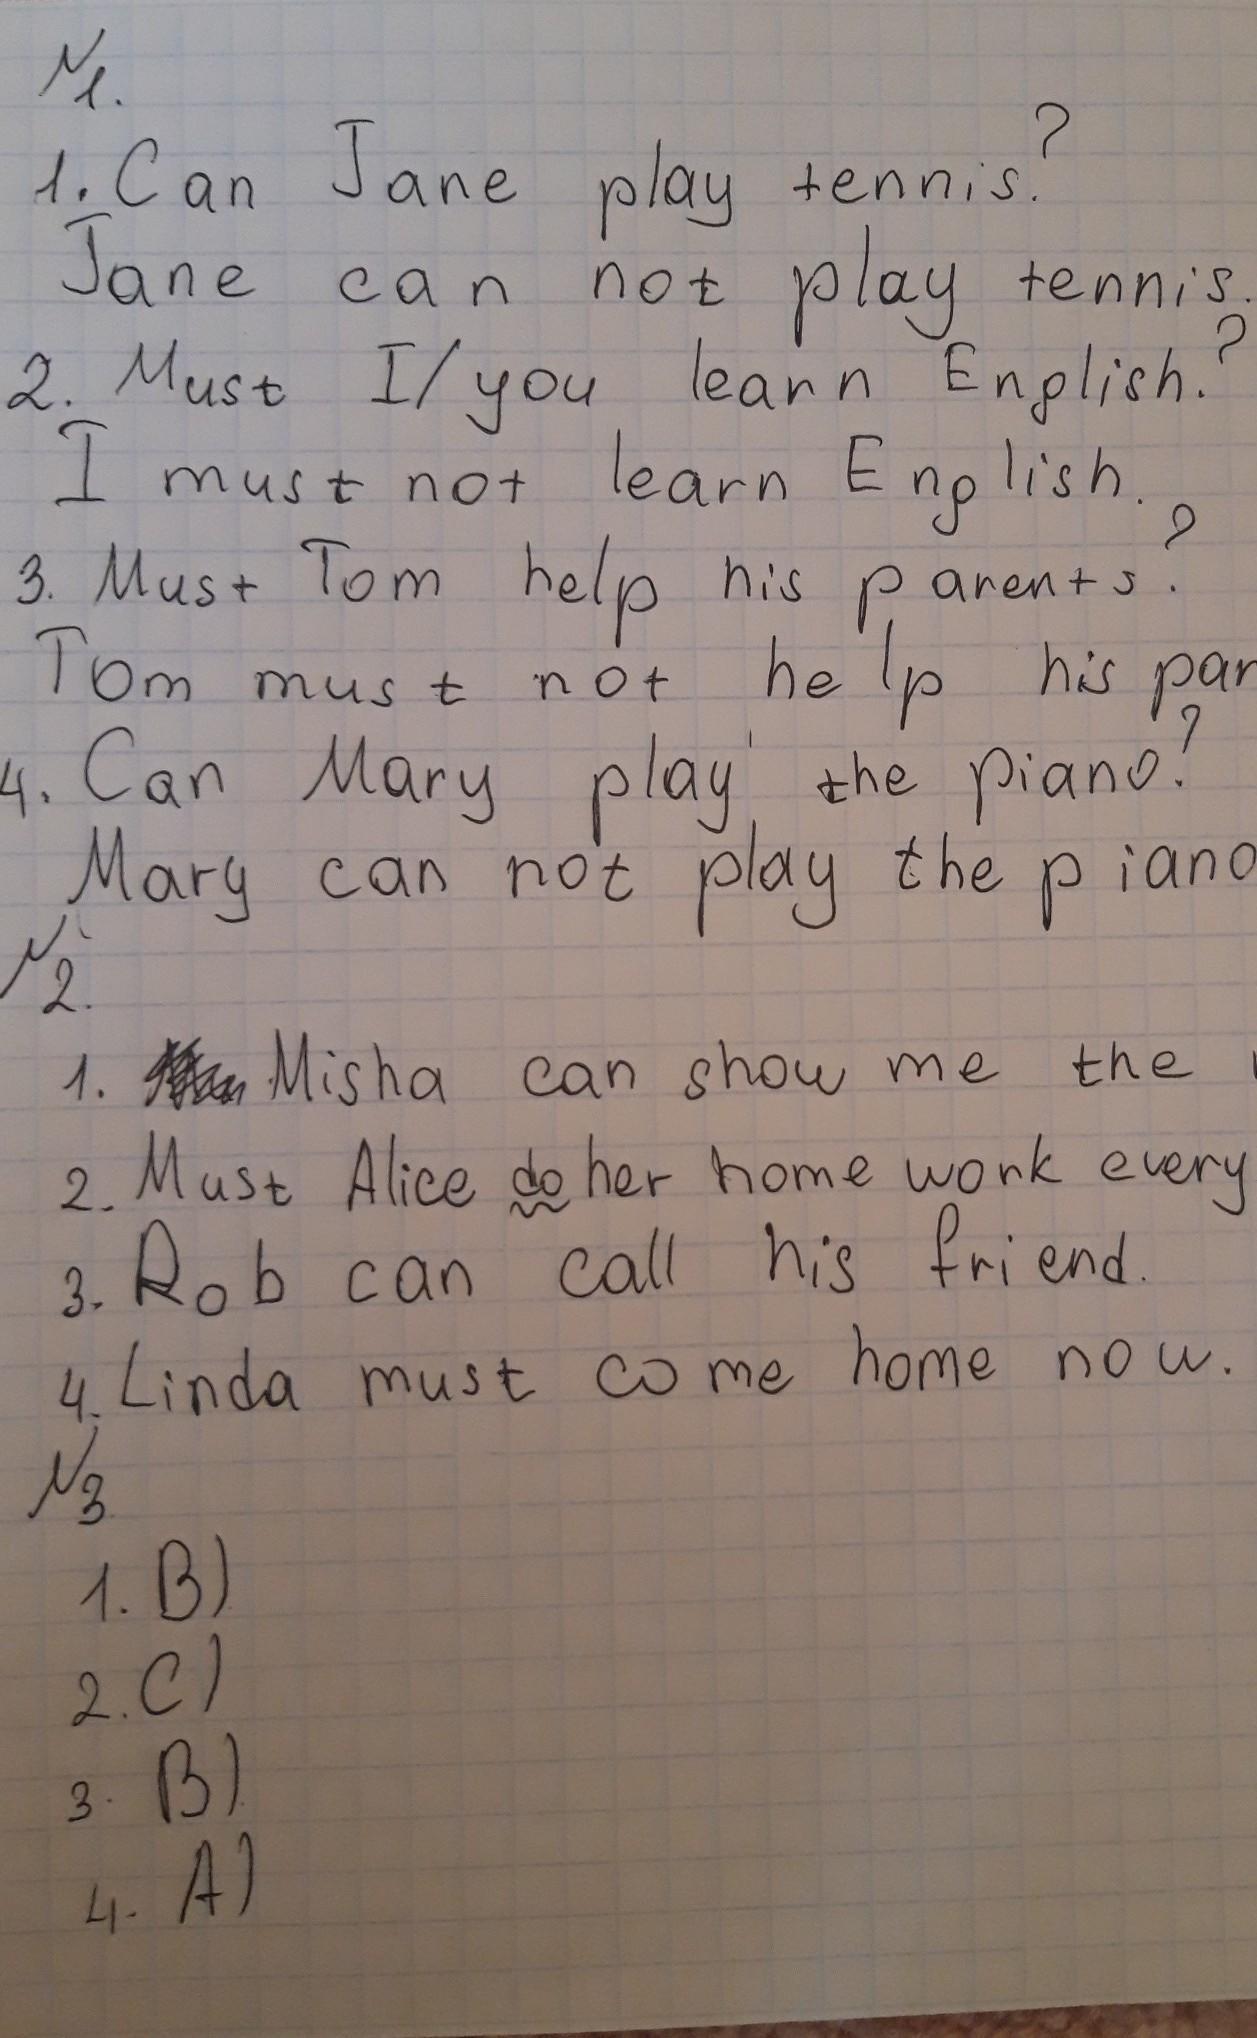 N1.
1. Can Jane play tennis?
Jane can not play tennis.
2. Must I/you learn English?
I must not learn English.
3. Must Tom help his parents?
Tom must not help his par
4. Can Mary play the piano?
Mary can not play the piano
N2.
1. Misha can show me the
2. Must Alice do her home work every
3. Rob can call his friend.
4. Linda must come home now.
N3
1. B)
2. C)
3. B)
4. A)